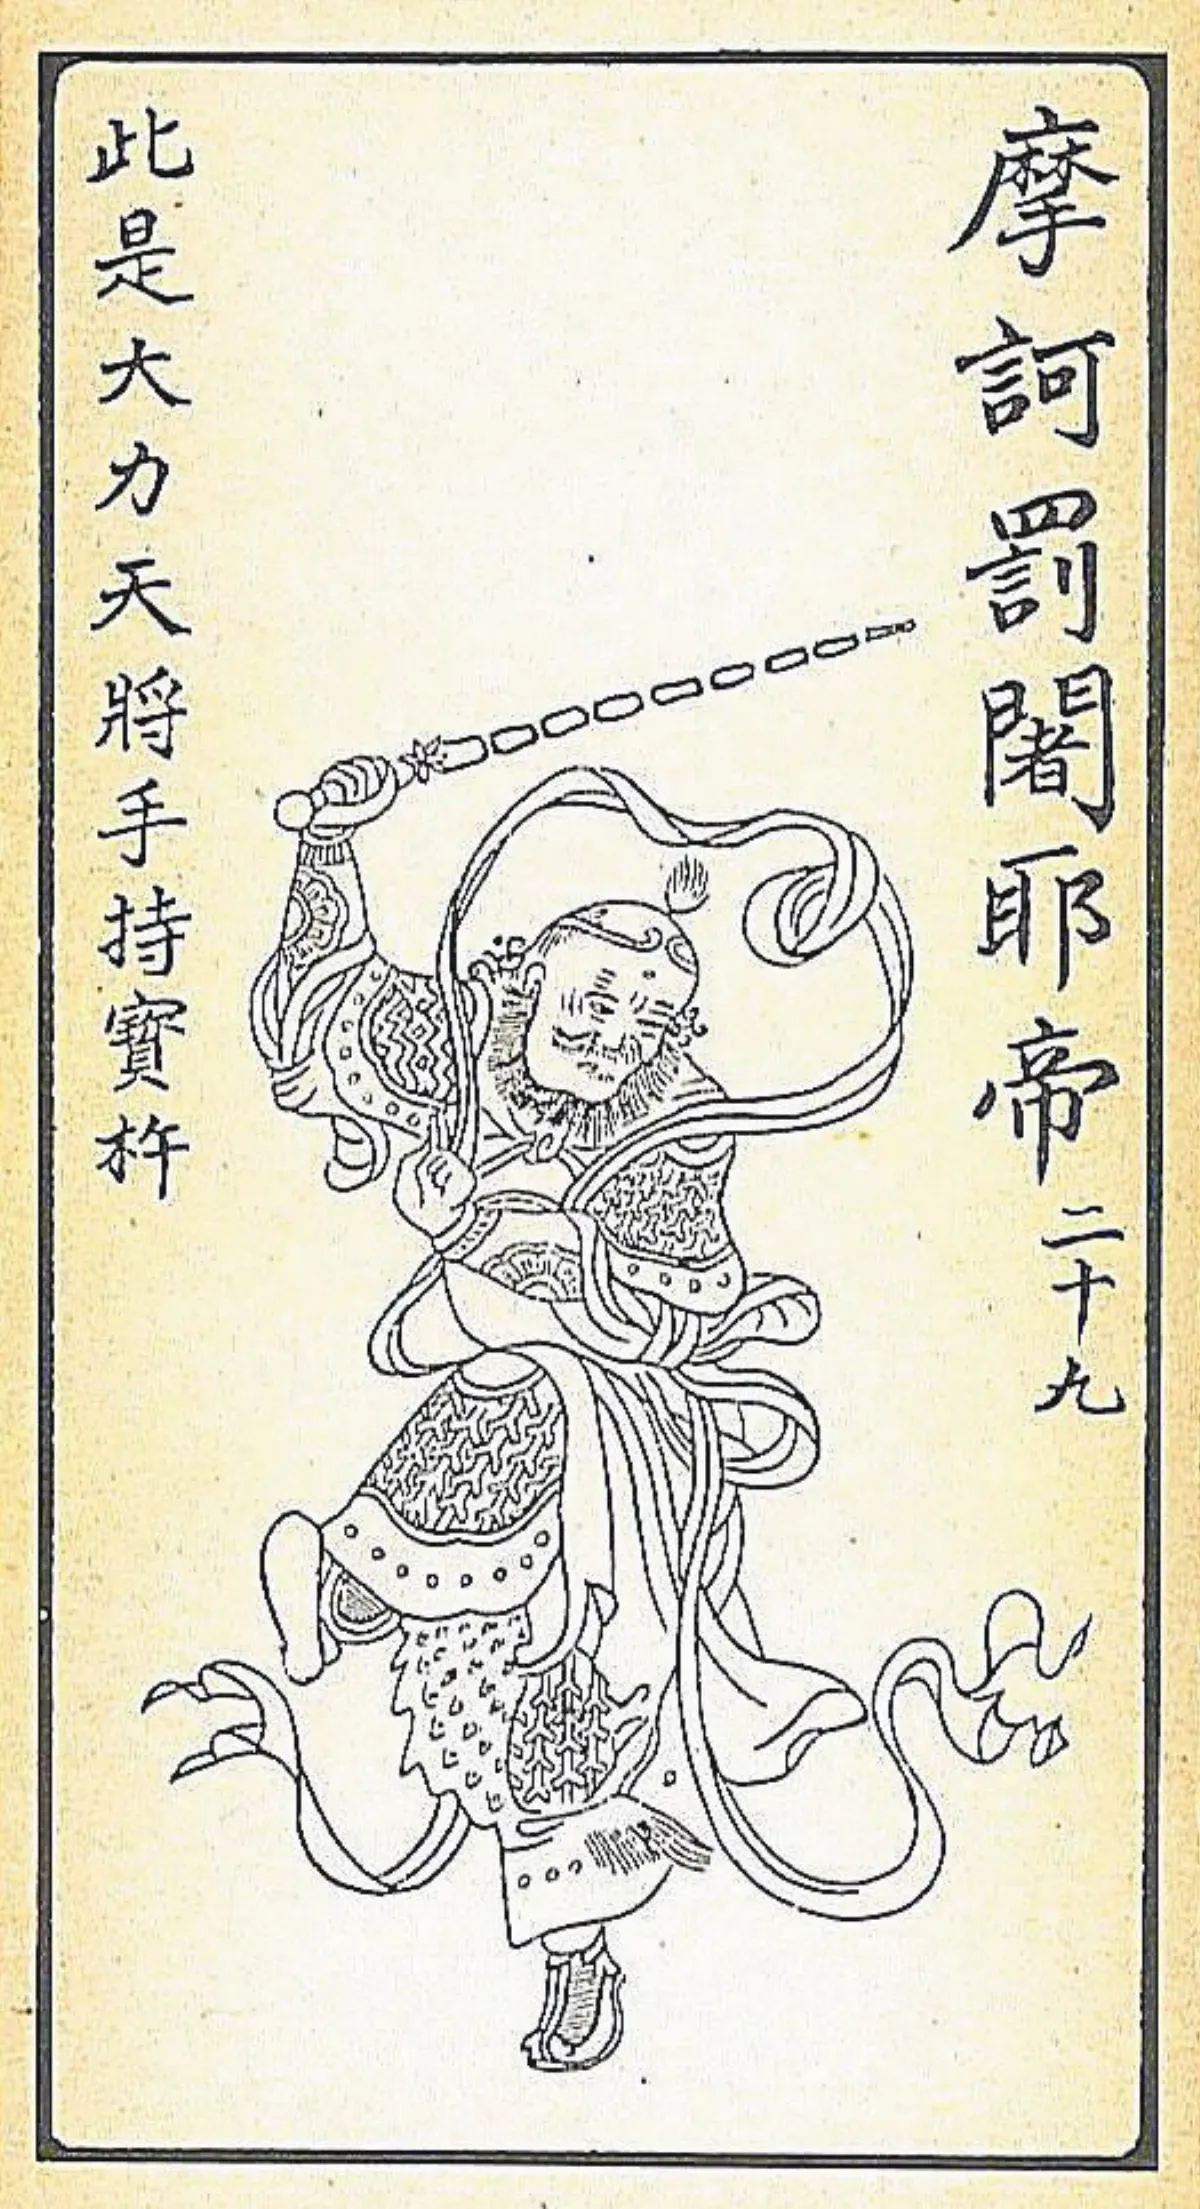 摩訶罰闍耶帝二十九
此是大力天將手持寶杵